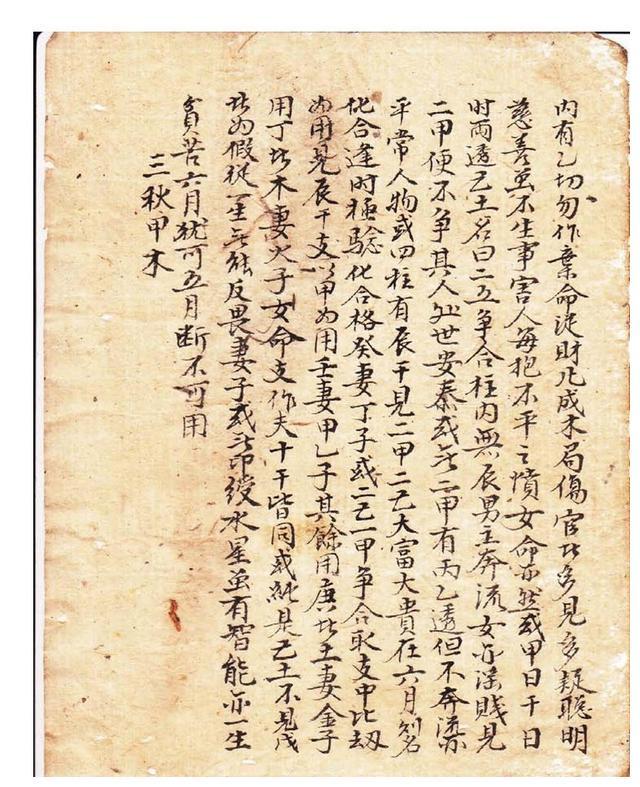 內有乙切勿作棄命從財凡成木局傷官此多見多疑聰明
慈善並不生事害人每抱不平之憤女命亦然或甲日干日
时兩透己土名曰二土争合柱內無辰男主奔流女亦淫賤見
二甲便不争其人処世安泰或無二甲有丙乙透但不奔流亦
平常人物或四柱有辰干見二甲二己大富大貴在六月則名
化合逢时極騐化合格癸妻丁子或二己一甲争合取支中比劫
为用見辰干支以甲为用壬妻甲乙子其餘用庚此土妻金子
用丁此木妻火子女命支作夫十干皆同或純是己土不見戊
此为假従一生無能反畏妻子或無印綬水星並有智能亦一生
貧苦六月犹可五月断不可用
三秋甲木